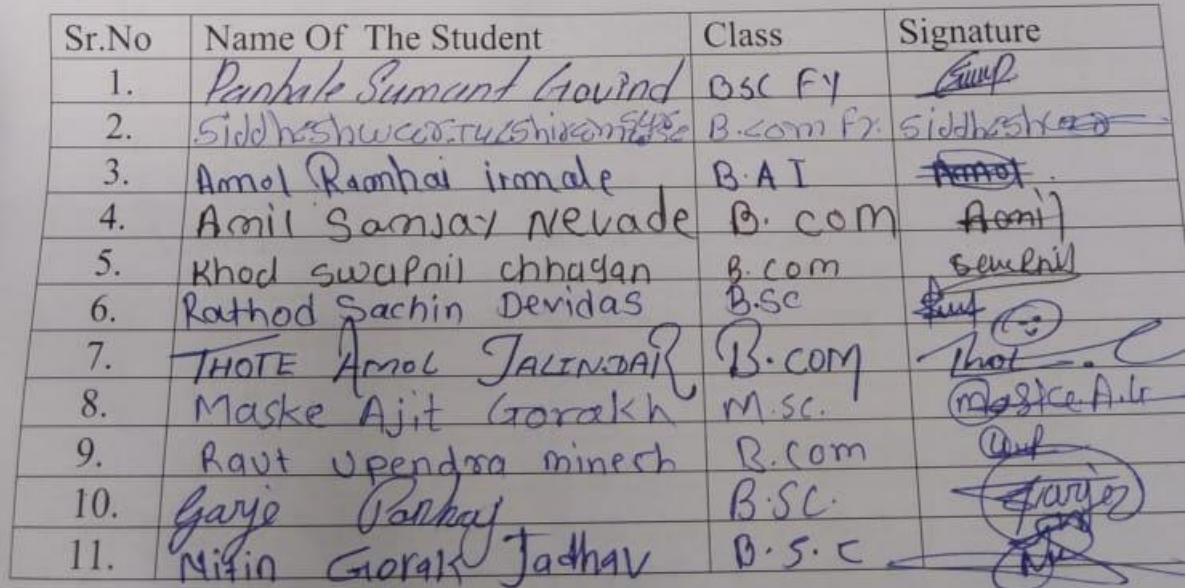 Sr.No Name Of The Student Class Signature
1. Panhale Sumant Govind BSC FY
2. B.com Fy. Siddhesh
3. Amol Rambhai irmale B.A I Amol
4. Amil Sanjay Nevade B. com Aamil
5. Khod swapnil chhagan B.com swapnil
6. Rathod Sachin Devidas B.SC
7. THOTE Amol JALINDAR B.com Thot
8. Maske Ajit Gorakh M.sc. Maske A.G
9. Raut Upendra minesh B.com
10. Garje Pankaj B.SC. Garje
11. Nitin Gorak Jadhav B.S.C